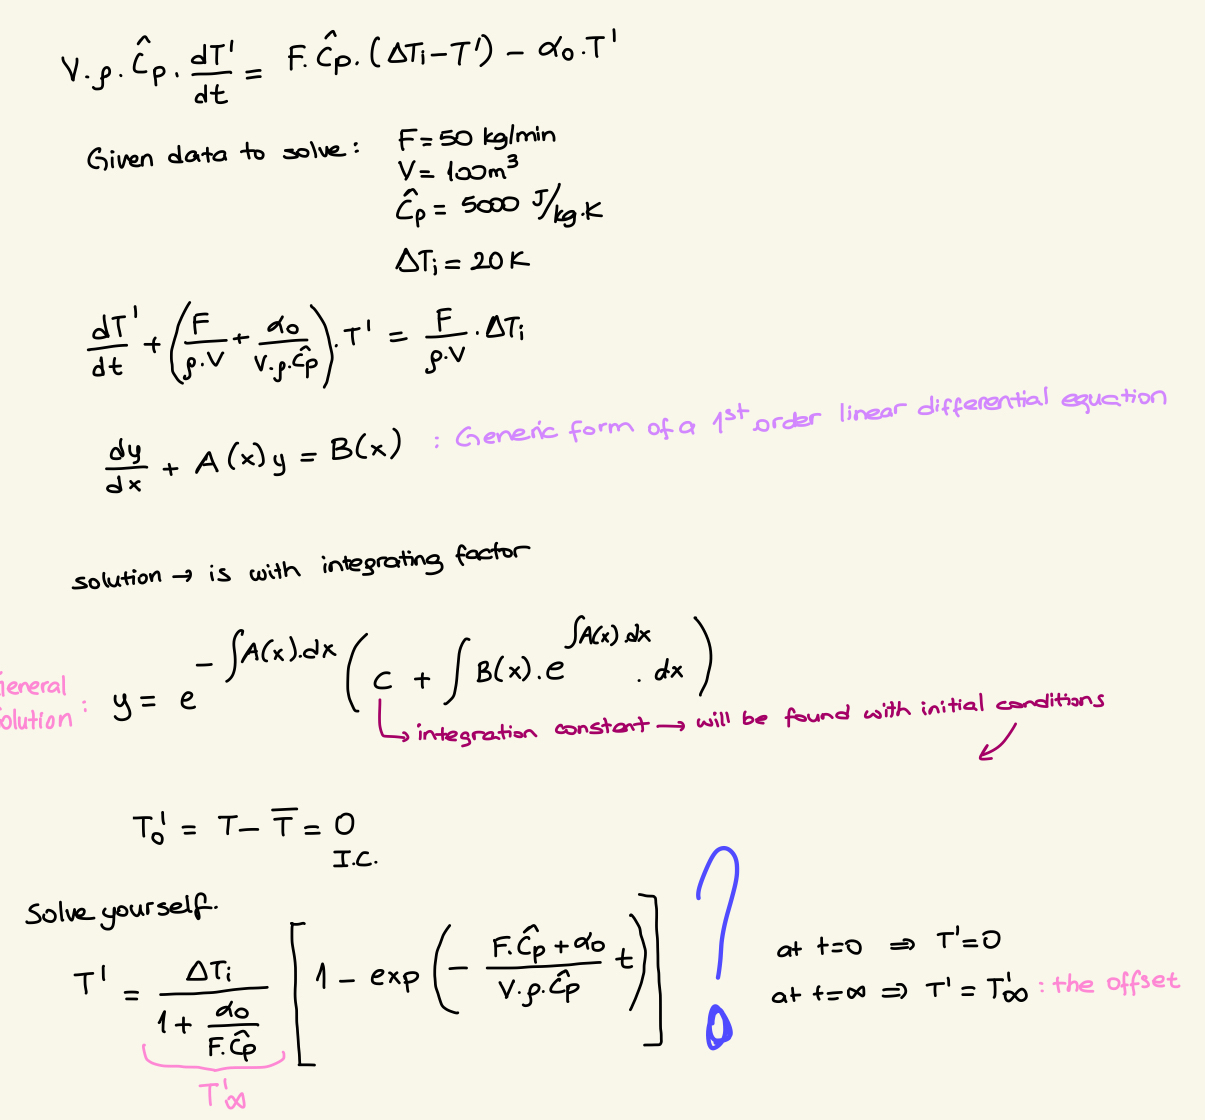 V.ρ.Ĉp. dT'/dt = F.Ĉp.(ΔTi−T') − α0.T'
Given data to solve: F=50 kg/min
V= 100m³
Ĉp= 5000 J/kg.K
ΔTi = 20K
dT'/dt + (F/ρ.V + α0/V.ρ.Ĉp).T' = F/ρ.V .ΔTi
dy/dx + A(x)y = B(x) : Generic form of a 1st order linear differential equation
solution → is with integrating factor
General Solution: y = e^(−∫A(x).dx) (C + ∫B(x).e^(∫A(x).dx) . dx)
↳ integration constant → will be found with initial conditions
T0' = T − T̄ = 0
I.C.
Solve yourself.
T' = ΔTi/(1+ α0/F.Ĉp) [1 − exp(− (F.Ĉp+α0)/(V.ρ.Ĉp) t)] ? at t=0 ⇒ T'=0
at t=∞ ⇒ T' = T'∞ : the offset
T'∞